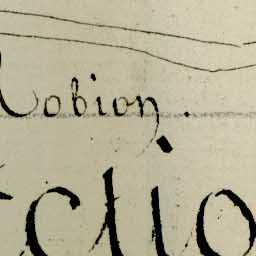 Robion.
ctio